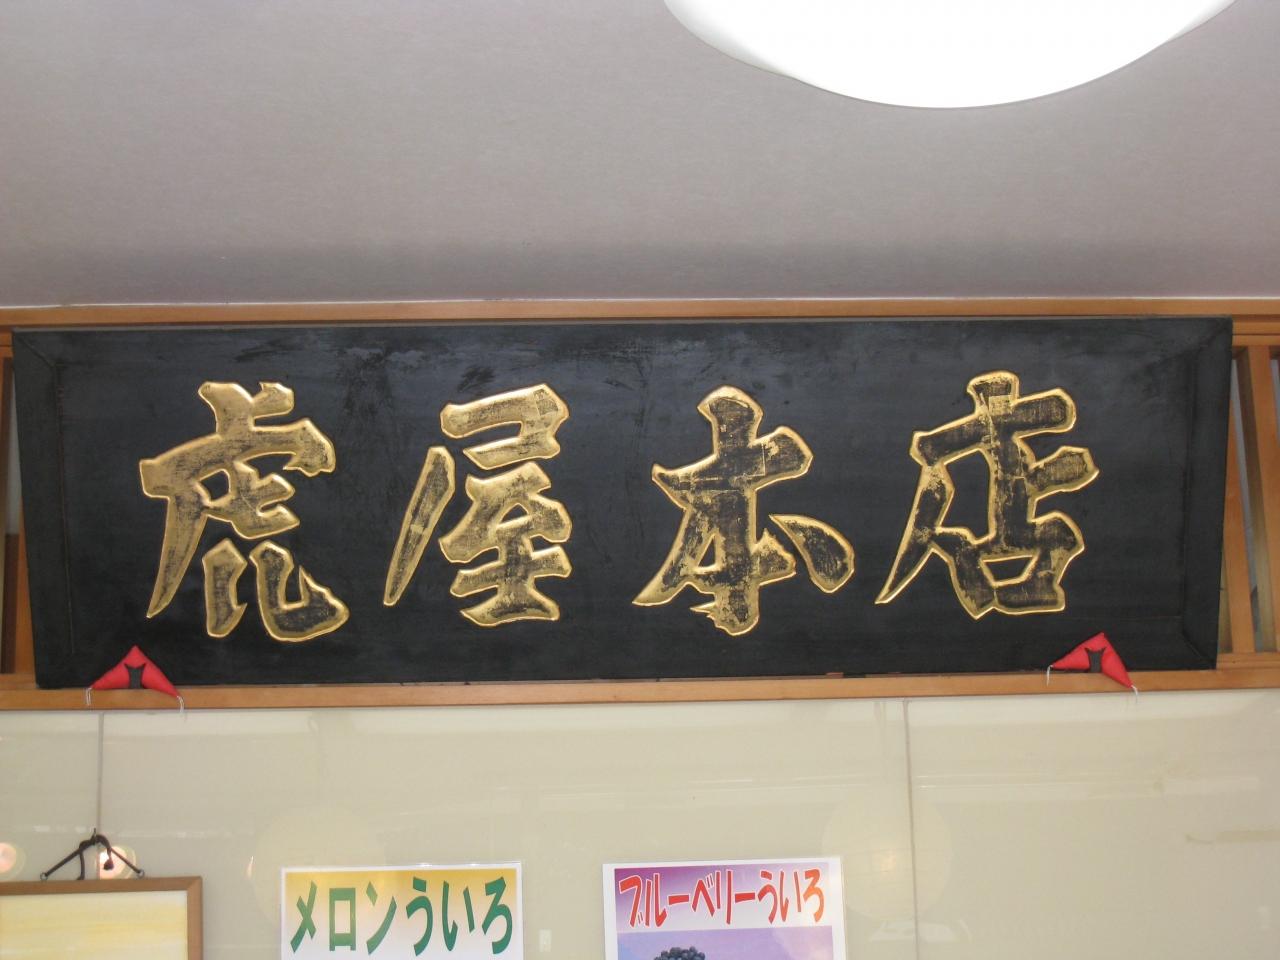 虎屋本店
メロンういろ
ブルーベリーういろ